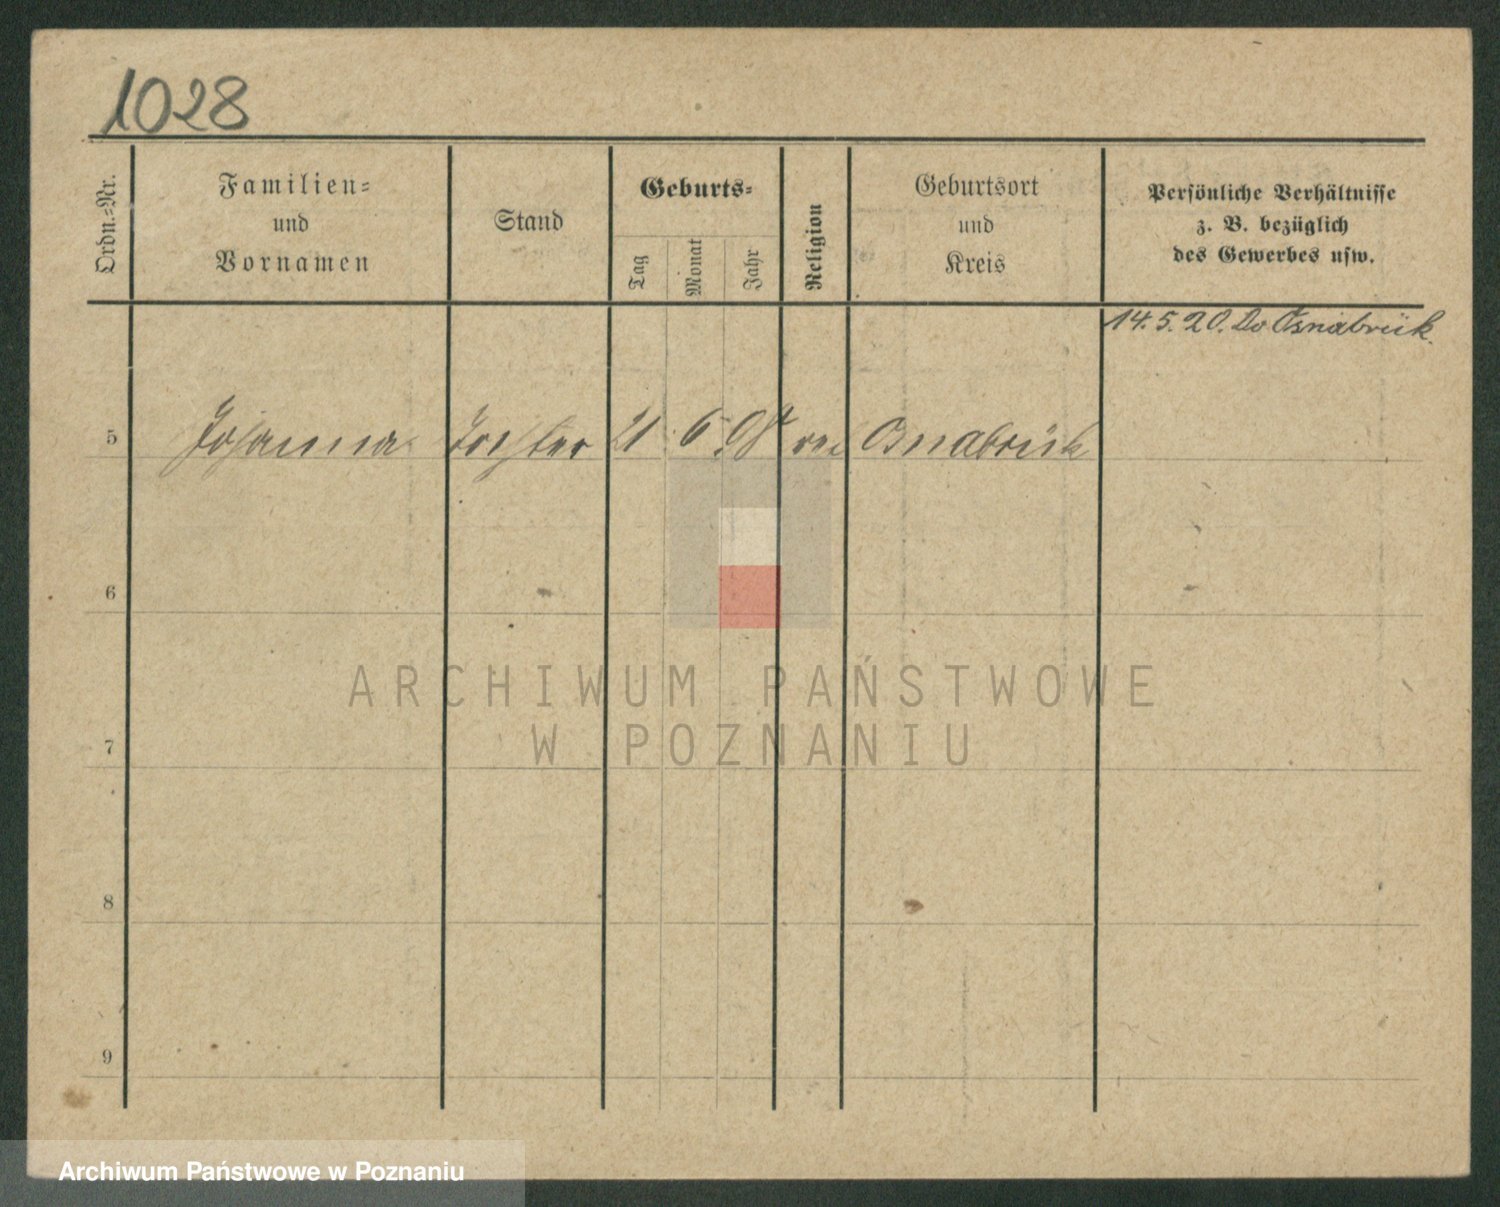 1028
Ordn.-Nr.
Familien-
und
Vornamen
Stand
Geburts-
Tag
Monat
Jahr
Religion
Geburtsort
und
Kreis
Persönliche Verhältnisse
z. B. bezüglich
des Gewerbes usw.
14. 5. 20. Osnabrück
5 Johanna Tochter 21 6 08 Osnabrück
6
7
8
9
ARCHIWUM PAŃSTWOWE
W POZNANIU
Archiwum Państwowe w Poznaniu